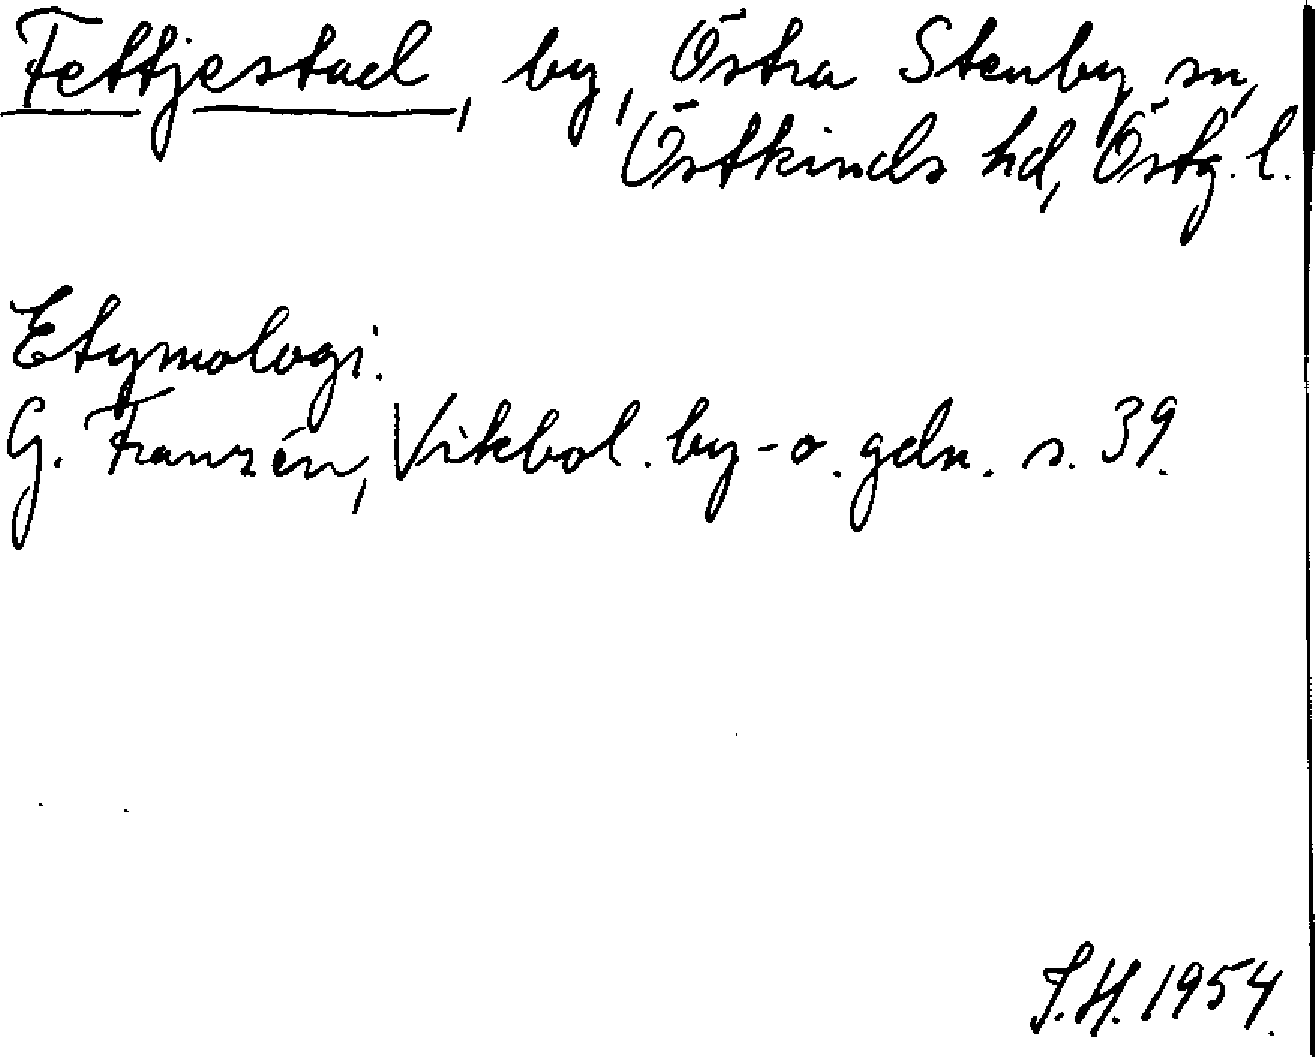 Fettjestad, by, Östra Stenby sn,
Östkinds hd, Östg. l.
Etymologi.
G. Franzén, Vikbol. by- o. gdn. s. 39.
S.H. 1954.